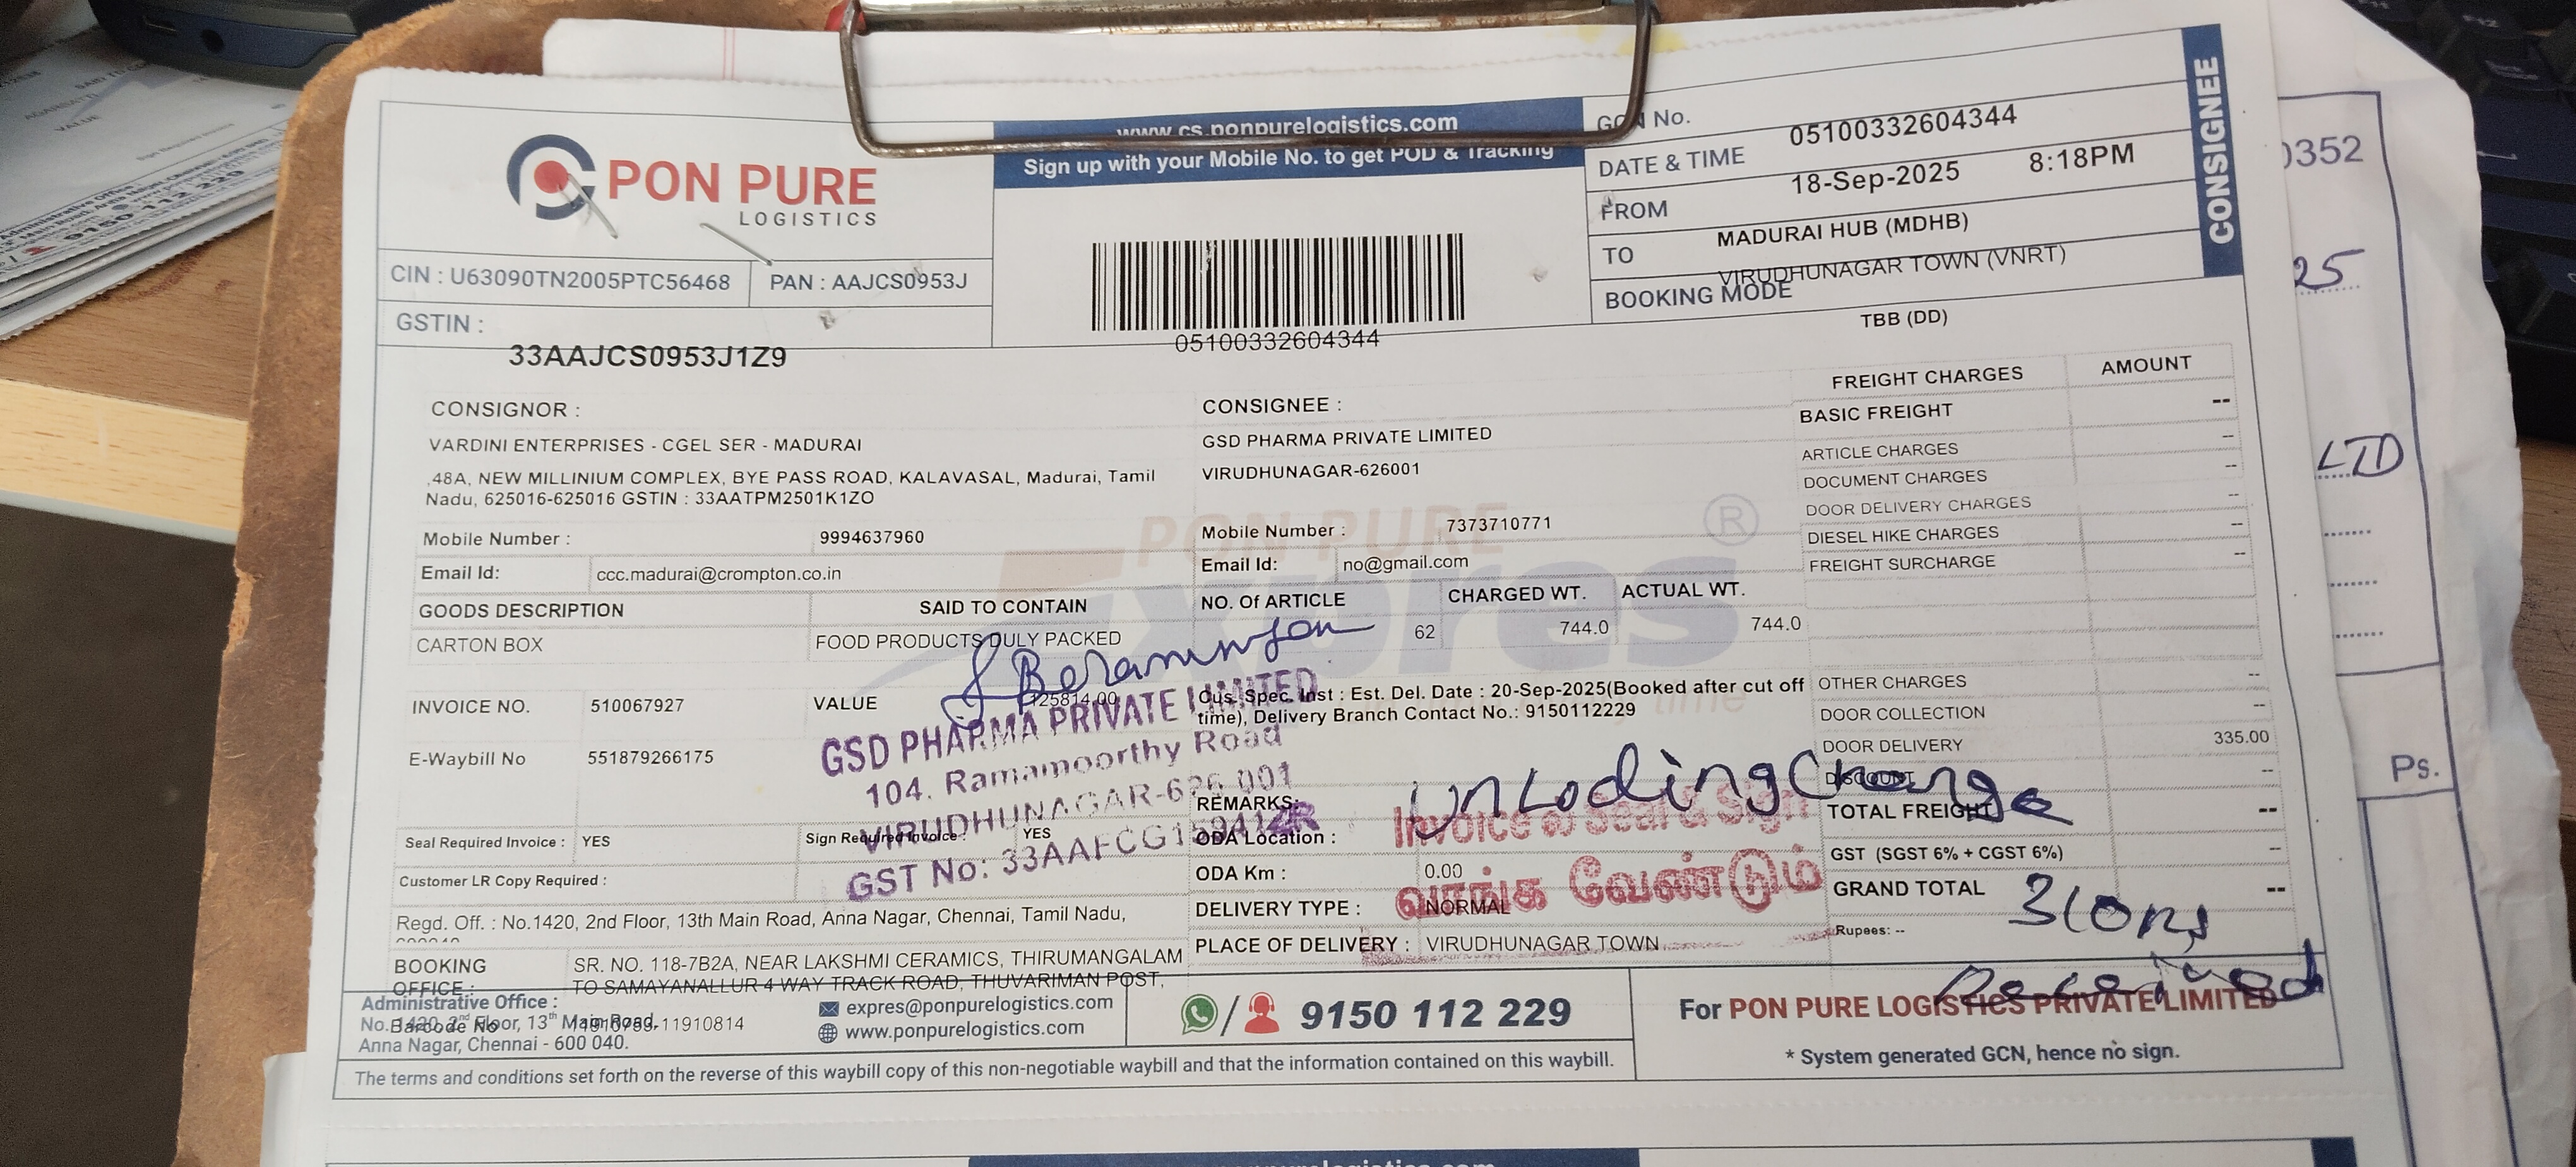 PON PURE
LOGISTICS
CIN : U63090TN2005PTC56468
PAN : AAJCS0953J
GSTIN :
33AAJCS0953J1Z9
www.cs.ponpurelogistics.com
Sign up with your Mobile No. to get POD & Tracking
05100332604344
GCN No.
05100332604344
DATE & TIME
18-Sep-2025 8:18PM
FROM
MADURAI HUB (MDHB)
TO
VIRUDHUNAGAR TOWN (VNRT)
BOOKING MODE
TBB (DD)
CONSIGNEE
CONSIGNOR :
VARDINI ENTERPRISES - CGEL SER - MADURAI
,48A, NEW MILLINIUM COMPLEX, BYE PASS ROAD, KALAVASAL, Madurai, Tamil
Nadu, 625016-625016 GSTIN : 33AATPM2501K1ZO
Mobile Number : 9994637960
Email Id: ccc.madurai@crompton.co.in
CONSIGNEE :
GSD PHARMA PRIVATE LIMITED
VIRUDHUNAGAR-626001
Mobile Number : 7373710771
Email Id: no@gmail.com
GOODS DESCRIPTION SAID TO CONTAIN NO. Of ARTICLE CHARGED WT. ACTUAL WT.
CARTON BOX FOOD PRODUCTS DULY PACKED 62 744.0 744.0
PON PURE
Expres
®
INVOICE NO. 510067927 VALUE 125814.00
Cus. Spec. Inst : Est. Del. Date : 20-Sep-2025(Booked after cut off
time), Delivery Branch Contact No.: 9150112229
E-Waybill No 551879266175
GSD PHARMA PRIVATE LIMITED
104. Ramamoorthy Road
VIRUDHUNAGAR-626 001
GST No: 33AAFCG1
Seal Required Invoice : YES Sign Required Invoice : YES
Customer LR Copy Required :
REMARKS:
ODA Location :
ODA Km : 0.00
DELIVERY TYPE : NORMAL
PLACE OF DELIVERY : VIRUDHUNAGAR TOWN
Invoice ல் Seal & Sign
வாங்க வேண்டும்
FREIGHT CHARGES AMOUNT
BASIC FREIGHT --
ARTICLE CHARGES --
DOCUMENT CHARGES --
DOOR DELIVERY CHARGES --
DIESEL HIKE CHARGES --
FREIGHT SURCHARGE --
OTHER CHARGES --
DOOR COLLECTION --
DOOR DELIVERY 335.00
DISCOUNT --
TOTAL FREIGHT --
GST (SGST 6% + CGST 6%) --
GRAND TOTAL --
Rupees: --
UnLoding Charge
310
Received
Regd. Off. : No.1420, 2nd Floor, 13th Main Road, Anna Nagar, Chennai, Tamil Nadu,
BOOKING
OFFICE :
SR. NO. 118-7B2A, NEAR LAKSHMI CERAMICS, THIRUMANGALAM
TO SAMAYANALLUR 4 WAY TRACK ROAD, THUVARIMAN POST,
Administrative Office :
No. 1420, 2nd Floor, 13th Main Road,
Anna Nagar, Chennai - 600 040.
Barcode No 11910814
expres@ponpurelogistics.com
www.ponpurelogistics.com
9150 112 229
For PON PURE LOGISTICS PRIVATE LIMITED
* System generated GCN, hence no sign.
The terms and conditions set forth on the reverse of this waybill copy of this non-negotiable waybill and that the information contained on this waybill.
0352
25
LTD
Ps.
9150 112 229